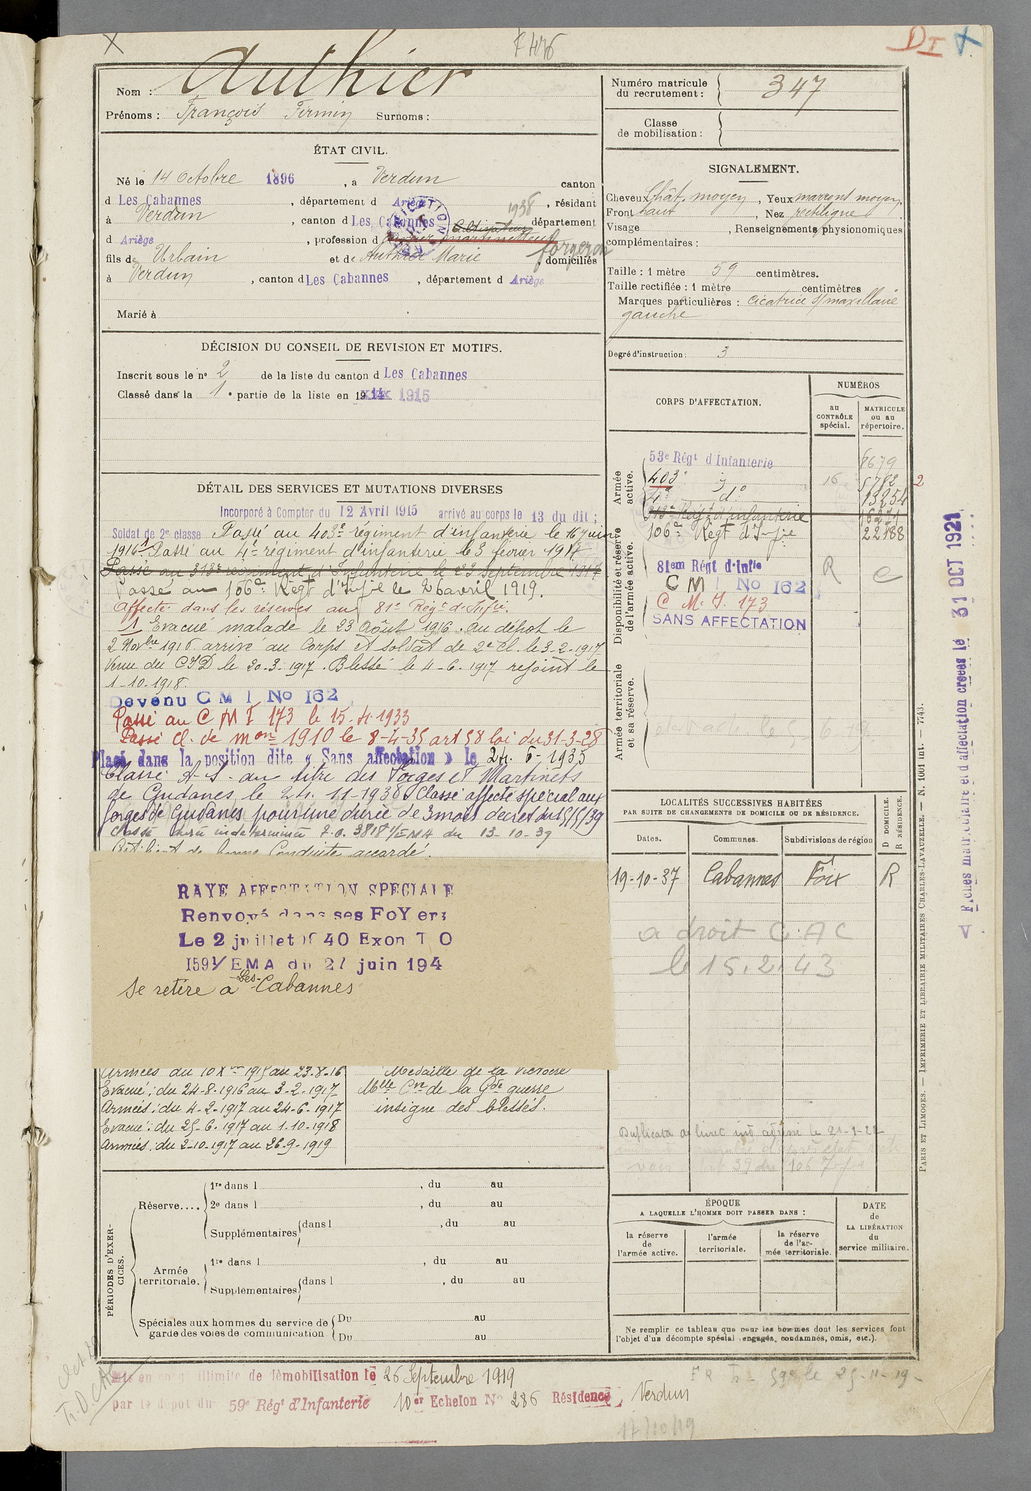 F 476
DI
Nom : Authier
Prénoms : François Firmin Surnoms :
ÉTAT CIVIL.
Né le 14 Octobre 1896, à Verdun canton
d Les Cabannes, département d Ariège, résidant
à Verdun, canton d Les Cabannes département
1938
d Ariège, profession d Cultivateur forgeron
fils de Urbain et de Authier Marie, domiciliés
à Verdun, canton d Les Cabannes, département d Ariège
Marié à
DÉCISION DU CONSEIL DE REVISION ET MOTIFS.
Inscrit sous le nº 2 de la liste du canton d Les Cabannes
Classé dans la 1e partie de la liste en 1915
DÉTAIL DES SERVICES ET MUTATIONS DIVERSES
Incorporé à Compter du 12 Avril 1915 arrivé au corps le 13 du dit ;
Soldat de 2e classe Passé au 403e régiment d'infanterie le 16 juin
1916. Passé au 4e régiment d'infanterie le 3 février 1917
Passé au 313e régiment d'Infanterie le 23 septembre 1917
Passé au 106e Regt d'Infie le 26 avril 1919.
Affecté dans les réserves au 81e Régt d'Infie.
1 Evacué malade le 23 Août 1916. Au dépôt le
2 Novbre 1916 arrivé au Corps et soldat de 2e Cl. le 3-2-1917
Venu du CID le 30-3-1917. Blessé le 4-6-1917 rejoint le
1-10-1918.
Devenu C M I No 162
Passé au C M I 173 le 15-4-1933
Passé cl. de mon 1910 le 8-4-35 art 58 loi du 31-3-28
Placé dans la position dite « Sans affectation » le 24-6-1935
Classé A.S. au titre des Forges et Martinets
de Gudanes le 24.11-1938. Classé affecté spécial aux
forges de Gudanes pour une durée de 3 mois décret du 15/5/39
Classé durée indéterminée 7-0.3818/EMA du 13-10-39
Certificat de bonne Conduite accordé.
RAYE AFFECTATION SPECIALE
Renvoyé dans ses FoYers
Le 2 juillet 1940 Exon T O
1591/EMA du 27 juin 194
se retire à Les Cabannes
Armées du 10 Xbre 1915 au 23-8-16
Evacué : du 24-8-1916 au 3-2-1917
Armées : du 4-2-1917 au 24-6-1917
Evacué : du 25-6-1917 au 1-10-1918
Armées : du 2-10-1917 au 26-9-1919
Médaille de la Victoire
Mlle Cve de la Gde guerre
insigne des blessés.
PÉRIODES D'EXERCICES.
Réserve....
1re dans l , du au
2e dans l , du au
Supplémentaires dans l , du au
Armée territoriale.
1re dans l , du au
Supplémentaires dans l , du au
Spéciales aux hommes du service de
garde des voies de communication
Du au
Du au
Mis en congé illimité de démobilisation le 26 Septembre 1919
par le dépôt du 59e Régt d'Infanterie 10er Echelon No 286 Résidence Verdun
17/10/19
Numéro matricule
du recrutement : 347
Classe
de mobilisation :
SIGNALEMENT.
Cheveux Chât. moyen, Yeux marrons moyen,
Front haut, Nez rectiligne
Visage , Renseignements physionomiques
complémentaires :
Taille : 1 mètre 59 centimètres.
Taille rectifiée : 1 mètre centimètres
Marques particulières : cicatrice s/ maxillaire
gauche
Degré d'instruction : 3
CORPS D'AFFECTATION.
NUMÉROS
au CONTRÔLE spécial.
MATRICULE ou au répertoire.
Armée active.
53e Régt d'Infanterie
403e
4e do
313e Régt d'infanterie
106e Regt d'I-fie 22188
Disponibilité et réserve de l'armée active.
81em Régt d'Infie R
C M I No 162
C M. I. 173
SANS AFFECTATION
Armée territoriale et sa réserve.
LOCALITÉS SUCCESSIVES HABITÉES
PAR SUITE DE CHANGEMENTS DE DOMICILE OU DE RÉSIDENCE.
Dates. Communes. Subdivisions de région D DOMICILE. R RÉSIDENCE.
19-10-37 Cabannes Foix R
a droit C.A C
le 15.2.43
ÉPOQUE
A LAQUELLE L'HOMME DOIT PASSER DANS :
la réserve de l'armée active.
l'armée territoriale.
la réserve de l'armée territoriale.
DATE de LA LIBÉRATION du service militaire.
Ne remplir ce tableau que pour les hommes dont les services font
l'objet d'un décompte spécial (engagés, condamnés, omis, etc.).
PARIS ET LIMOGES. — IMPRIMERIE ET LIBRAIRIE MILITAIRES CHARLES-LAVAUZELLE. — N. 1001 int. — 7743.
Fiches matricule et d'affectation créées le 31 OCT 1921